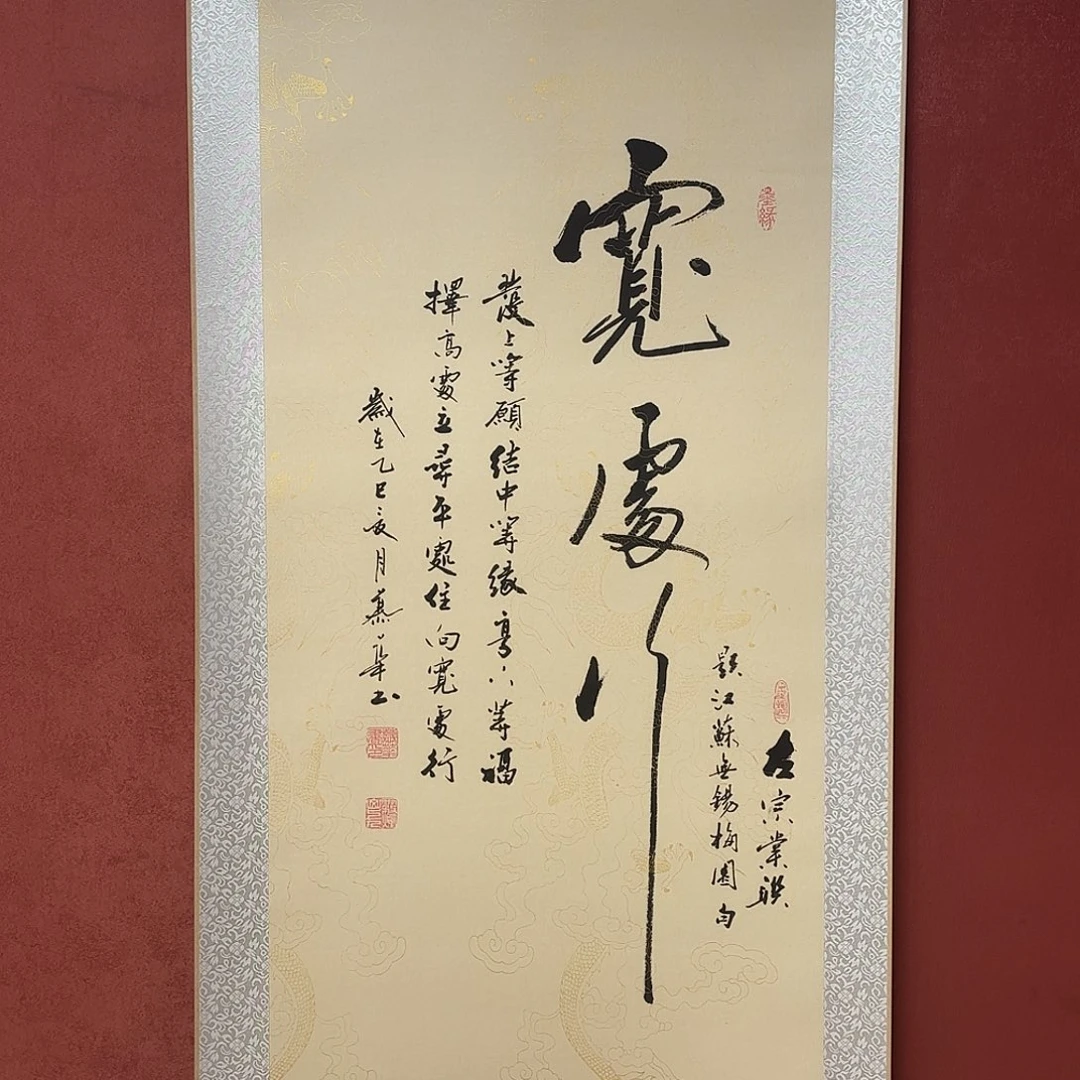 墨緣
左宗棠聯
題江蘇無錫梅園句
寬處行
發上等願結中等緣享下等福
擇高處立尋平處住向寬處行
歲在乙巳亥月慕華書